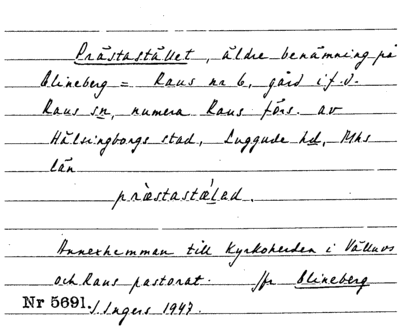 Prästastället, äldre benämning på
Clineberg = Raus nr 6, gård i f.d.
Raus sn, numera Raus förs. av
Hälsingborgs stad, Luggude hd, Mhs
län
præ̀stastæ̀lad.
Annexhemman till Kyrkoherden i Välluvs
och Raus pastorat. Jfr Clineberg
Nr 5691. I. Ingers 1947.